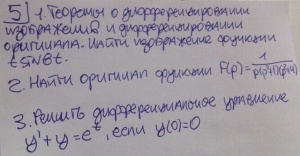 5 1. Теоремы о дифференцировании
изображения и дифференцировании
оригинала. Найти изображение функции
t sin8t.
2. Найти оригинал функции F(p)= 1/p(p²+1)(p²+4)
3. Решить дифференциальное уравнение
y' + y = eᵗ, если y(0)=0